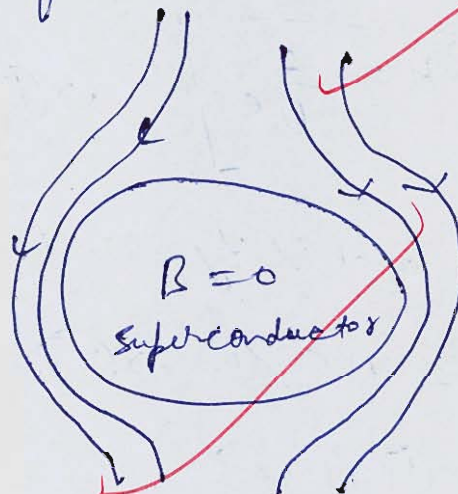 B = 0
Superconductor